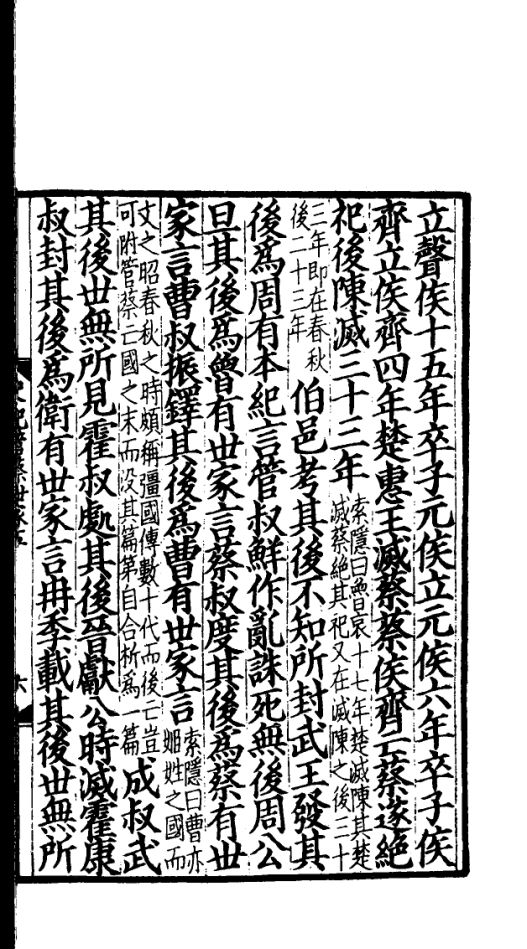 立聲侯十五年卒子元侯立元侯六年卒子侯
齊立侯齊四年楚惠王滅蔡蔡侯齊亡蔡遂絕
祀後陳滅三十三年
索隱曰魯哀十七年楚滅陳其楚
滅蔡絕其祀又在滅陳之後三十
三年即在春秋
後二十三年
伯邑考其後不知所封武王發其
後爲周有本紀言管叔鮮作亂誅死無後周公
旦其後爲魯有世家言蔡叔度其後爲蔡有世
家言曹叔振鐸其後爲曹有世家言
索隱曰曹亦
姬姓之國而
文之昭春秋之時頗稱彊國傳數十代而後亡豈
可附管蔡亡國之末而没其篇第自合析爲一篇
成叔武
其後世無所見霍叔處其後晉獻公時滅霍康
叔封其後爲衛有世家言冉季載其後世無所